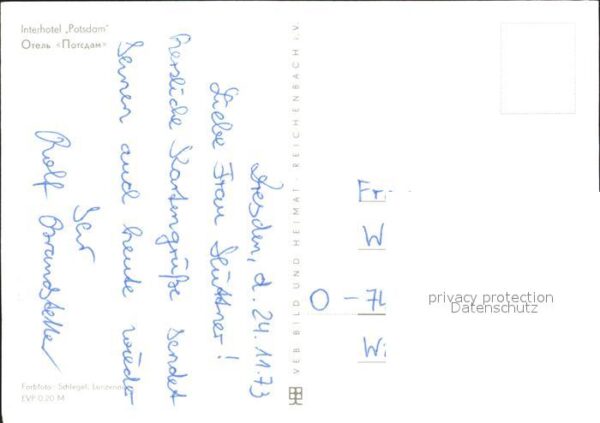 Interhotel „Potsdam"
Отель «Потсдам»
Dresden, d. 24.11.73
Liebe Frau
herzliche Kartengrüße sendet
Ihnen auch heute wieder
Ihr
Rolf Brandstetter
VEB BILD UND HEIMAT REICHENBACH i. V.
Fr
W
O - 7
Wi
privacy protection
Datenschutz
Farbfoto: Schlegel,
EVP 0,20 M